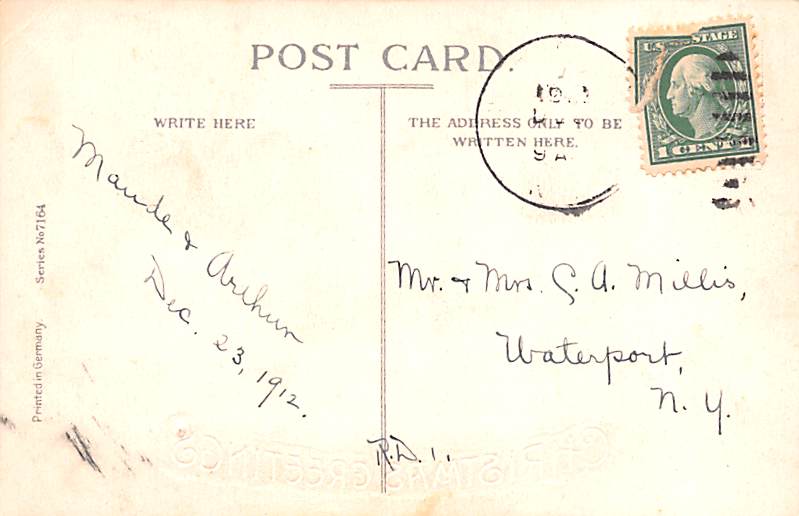 POST CARD.
WRITE HERE
THE ADDRESS ONLY TO BE
WRITTEN HERE.
U.S. POSTAGE
1 CENT
9 A
Maude & Arthur
Dec. 23, 1912.
Mr. & Mrs. C. A. Millis,
Waterport,
N. Y.
R.D. 1.
Series No 7164
Printed in Germany.
CHRISTMAS GREETINGS